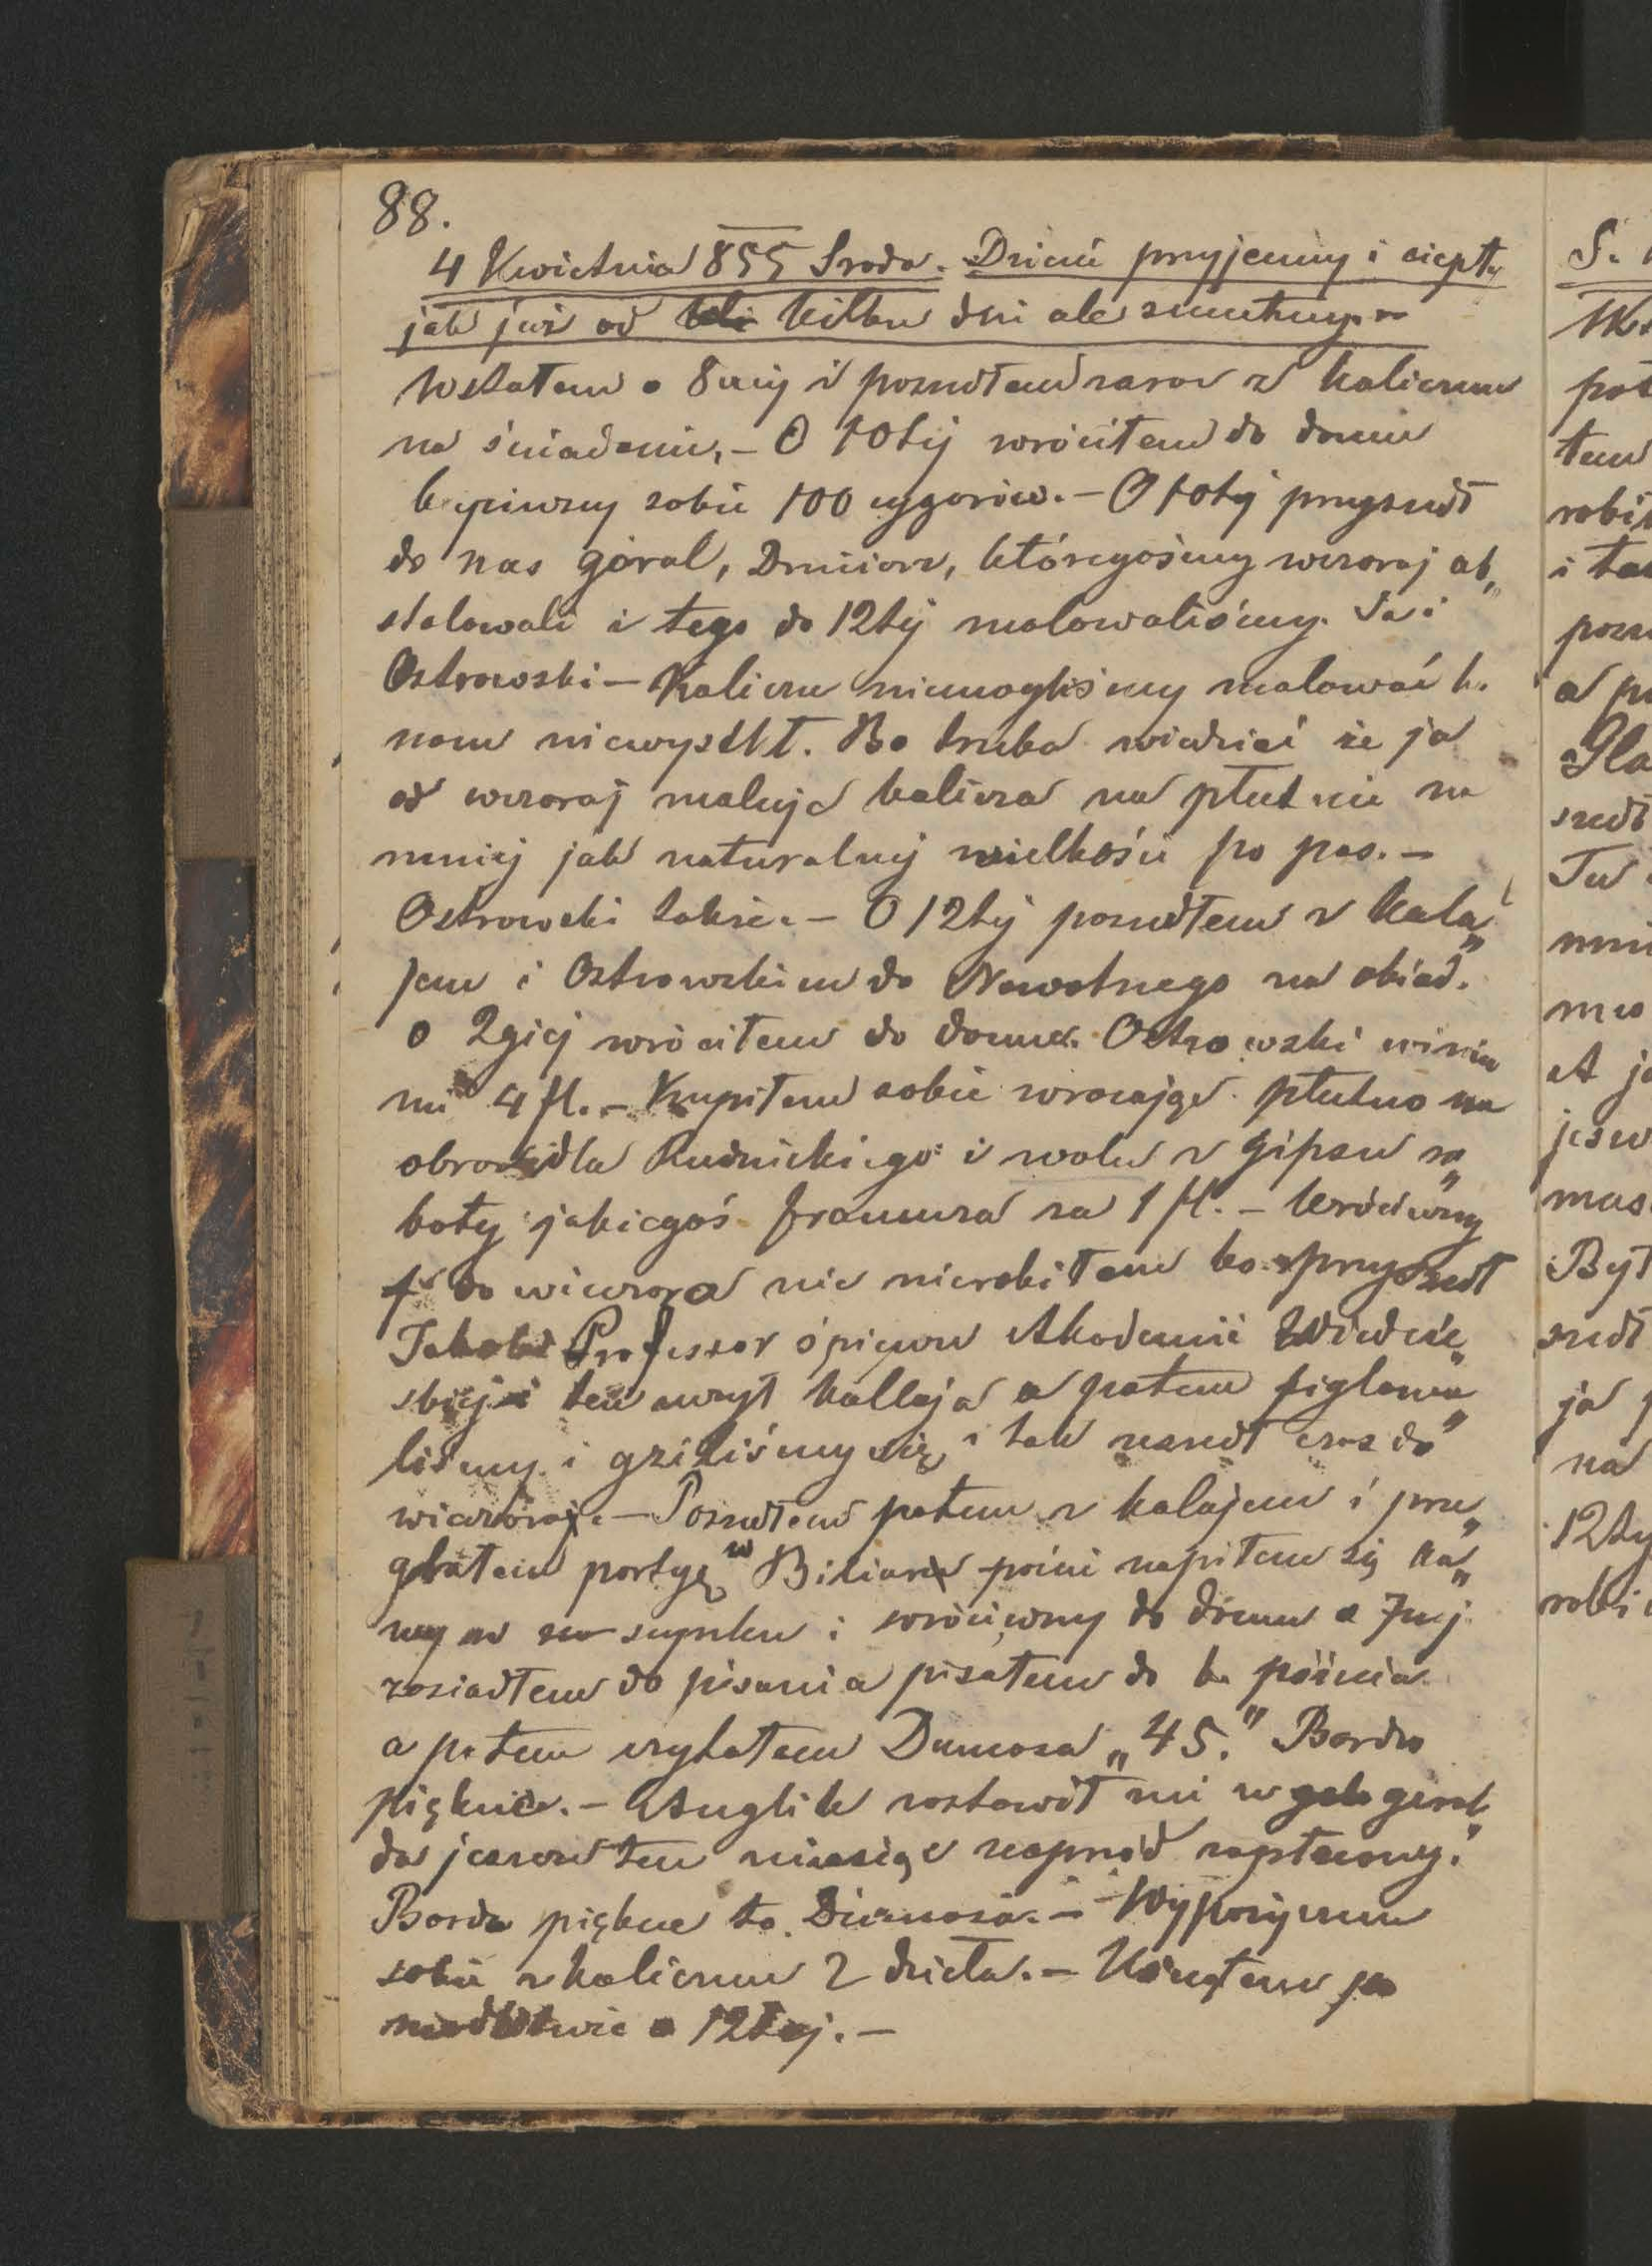 88.
4 Kwietnia 855 Środa. Dzień przyjemny i ciepły
jak już od kilku dni ale smutny. –
Wstałem o 8mej i poszedłem zaraz z Kaliczem
na śniadanie. – O 10tej wróciłem do domu
kupiwszy sobie 100 cygarów. – O 10tej przyszedł
do nas góral, Druciarz, któregośmy wczoraj ob„
stalowali i tego do 12tej malowaliśmy. Ja i
Ostrowski – Kalicza niemogliśmy malować b.
nam niewyszedł. Bo trzeba wiedzieć że ja
od wczoraj maluję Kalicza na płutnie na
mniej jak naturalnej wielkości po pas. –
Ostrowski także. – O 12tej poszedłem z Kala„
jem i Ostrowskim do Nowotnego na obiad.
o 2giej wróciłem do domu. Ostrowski winien
mi 4 fl. – Kupiłem sobie wracając płutno na
obraz dla Rudnickiego i wołu z gipsu ro„
boty jakiegoś francuza za 1 fl. – Wróciwszy
do wieczora nic nierobiłem bo przyszedł
Professor śpiewu Akademii Wiedeń„
skiej i ten uczył Kallaja a potem figlowa„
liśmy i gziliśmy się i tak zeszedł czas do
wieczora. – Poszedłem potem z Kalajem i prze„
grałem partyę w Biliard poim napiłem się ka„
wy w szynku i wróciwszy do domu o 7mej
zasiadłem do pisania pisałem do b. późna
a potem czytałem Dumasa „45." Bardzo
pięknie. – Anglik zostawił mi w gerok„
da jeszcze ten miesiąc naprzód zapłacony.
Bardzo piękne to Dumasa. – Wypożyczam
sobie z Kaliczem 2 dzieła. – Usnąłem po
modlitwie o 12tej. –